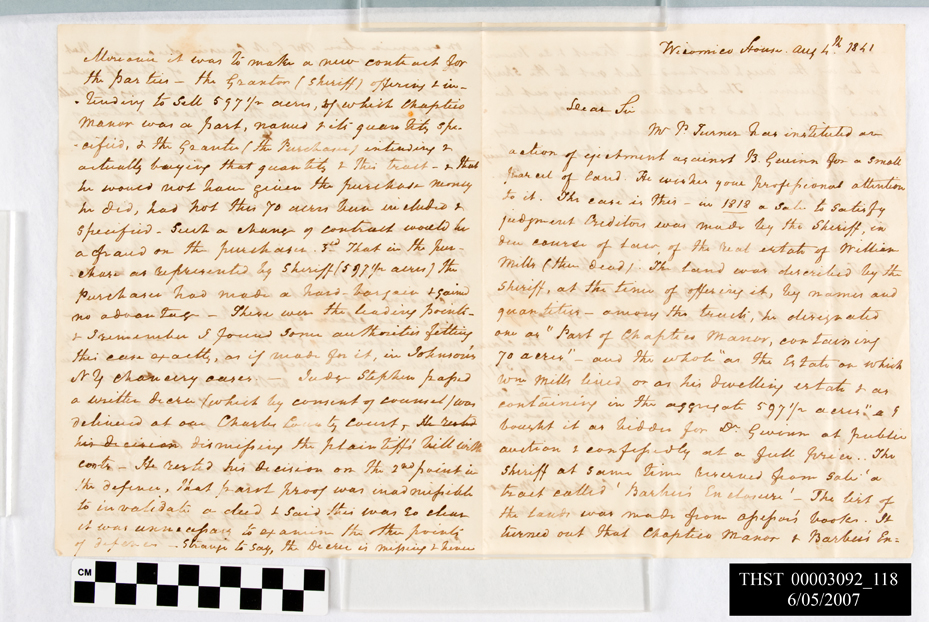 Moreover it was to make a new contract for
the parties – the Grantor (Sheriff) offering & in-
-tending to sell 597½ acres, of which Chaptico
Manor was a part, named & its quantity spe-
-cified, & the Grantee (the Purchaser) intending &
actually buying that quantity & this tract – & that
he would not have given the purchase money
he did, had not this 70 acres been included &
specified – Such a change of contract would be
a fraud on the purchaser. 3rd That in the pur-
chase as represented by Sheriff (597½ acres) the
purchaser had made a hard bargain & gained
no advantage – These were the leading points –
& I remember I found some authorities fitting
this case exactly, as if made for it, in Johnson's
N Y chancery cases – Judge Stephen passed
a written decree (which by consent of counsel) was
delivered at our Charles County Court, He rested
his decision dismissing the plaintiff's bill with
costs – He rested his decision on the 2nd point in
the defence, that parol proof was inadmissible
to invalidate a deed & said this was so clear
it was unnecessary to examine the other points
of defence – Strange to say, the Decree is missing & hence
Wicomico House. Aug 4th 1841
Dear Sir
Mr P Turner has instituted an
action of ejectment against B. Gwinn for a small
parcel of land. He wishes your professional attention
to it. The case is this – in 1818 a sale to satisfy
judgment Creditors was made by the Sheriff, in
due course of law, of the real estate of William
Mills (then dead). The land was described by the
Sheriff, at the time of offering it, by names and
quantities – among the tracts, he designated
one as "Part of Chaptico Manor, containing
70 acres" – and the whole "as the Estate on which
Wm Mills lived or as his dwelling estate & as
containing in the aggregate 597½ acres" &
bought it as bidder for Dr. Gwinn at public
auction & confessedly at a full price. The
Sheriff at same time reserved from sale 'a
tract called 'Barber's Enclosure' – The list of
the lands was made from assessor's books. It
turned out that Chaptico Manor & Barber's En-
CM
THST 00003092_118
6/05/2007